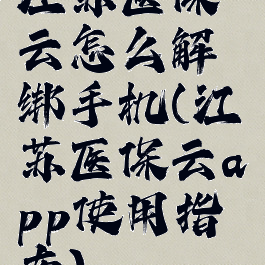 江苏医保
云怎么解
绑手机(江
苏医保云a
pp使用指
南)